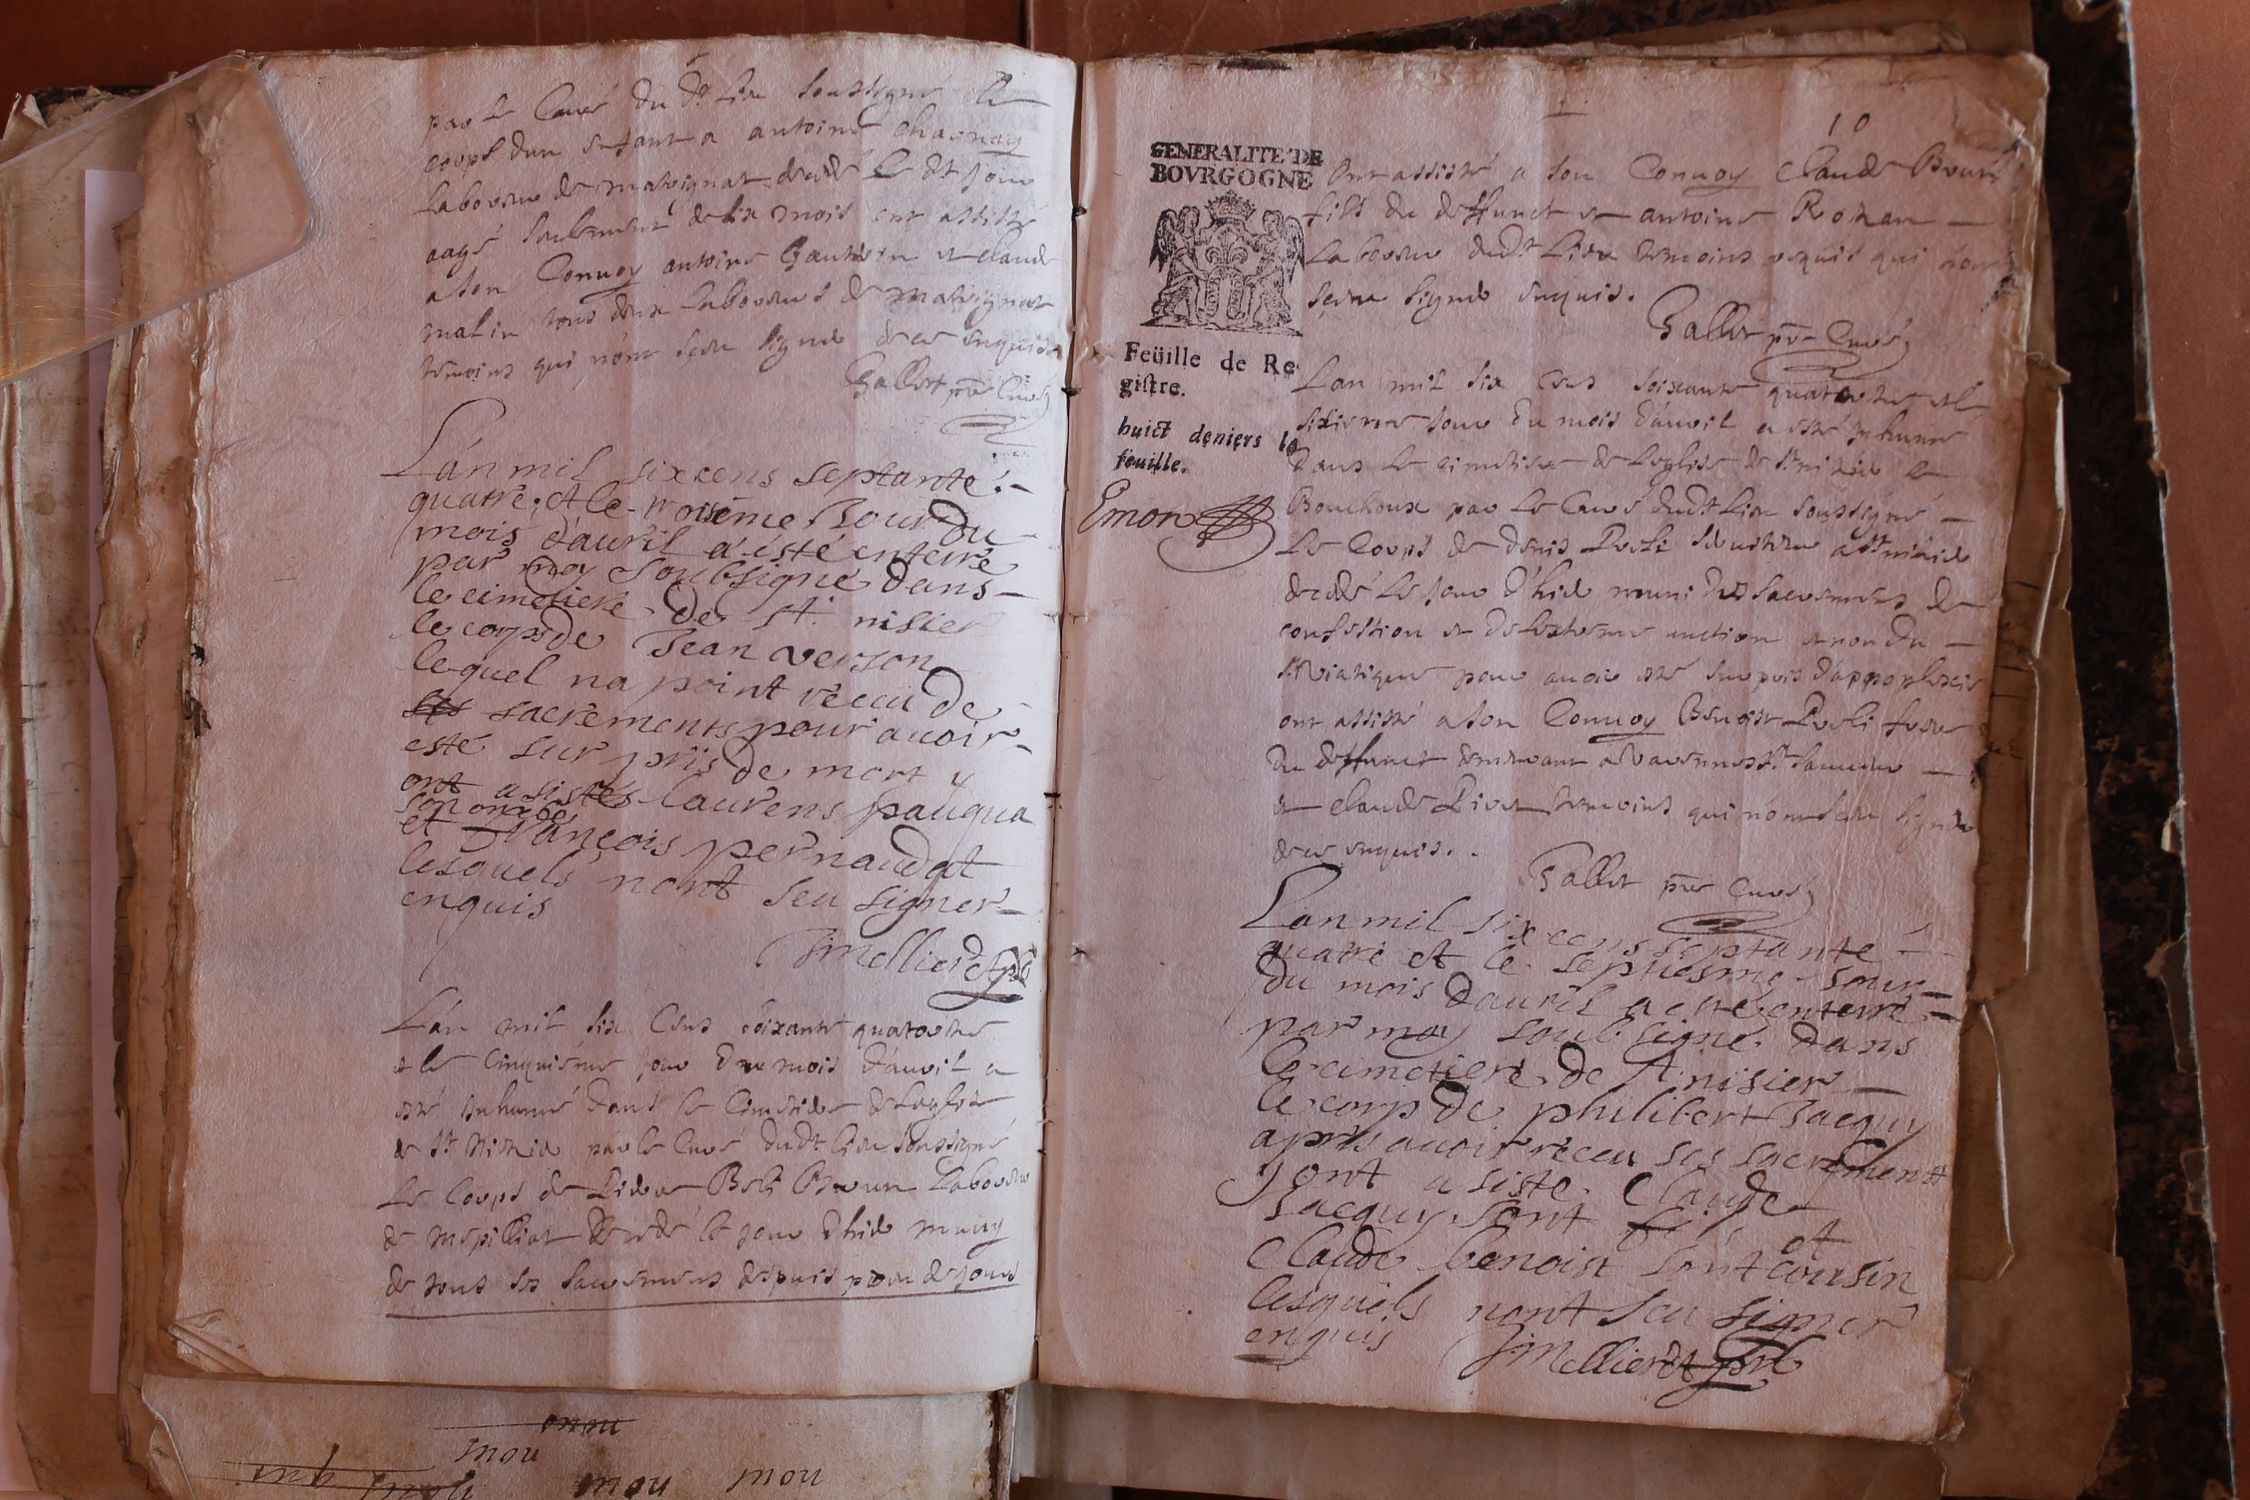 par le Curé du dt lieu soussigné le
corps dun enfant a antoine Charnay
laboureur de malvignat decedé le dt jour
aagé seulement de six mois ont assisté
a son Convoy antoine Gauthier et claude
malin tous deux laboureurs de malvignat
temoins qui n'ont sceu signer de ce enquis
Gallet pre Curé
L'an mil six cens septante
quatre et le troisème Jour du
mois d'auril a esté enterré
par moy soubsigné dans
le cimetiere de st. nisier
le corps de Jean verson
lequel na point reccu de
ses sacrements pour auoir
esté surpris de mort y
ont asistés laurens pauqua
son oncle
et François pernaudat
lesquels nont seu signer
enquis
JMellierdet pre
L'an mil six Cens soixante quatorze
et le cinquiéme jour du mois d'auril a
esté inhumé dans le Cimetiere de leglise
de St Nizier par le Curé dudt lieu soussigné
le Corps de Laboureur
de mespilliat decedé le jour d'hier muny
de tous ses sacremens depuis peu de jours
10
GENERALITE DE
BOVRGOGNE
Feüille de Re
gistre.
huict deniers la
feuille.
Emon
Ont assisté a son Convoy Claude
fils du deffunct et antoine Rohan
laboureur dudt lieu temoins requis qui n'ont
sceu signer enquis.
Gallet pre Curé
L'an mil six cens soixante quatorze et le
sixieme jour du mois d'auril a esté inhumé
dans le cimetiere de leglise de St nizier le
Bouchoux par le Curé dudt lieu soussigné
le Corps de denis a St nizier
decedé le jour d'hier muni des sacremens de
confession et de lextreme unction et non du
St Viatique pour auoir esté surpris d'appoplexie
ont assisté a son Convoy Benoist frere
du deffunct demeurant a Varennes St Sauveur
et claude temoins qui n'ont sceu signer
de ce enquis.
Gallet pre Curé
L'an mil six cens septante
quatre et le septiesme Jour
du mois d'auril a esté enterré
par moy soubsigné dans
le cimetiere de St nisier
le corp de philibert Jacquy
apres auoir receu ses sacrement
y ont asiste Claude
Jacquy sont et
Claude benoist sont cousin
lesquels nont seu signer
enquis
JMellierdet pre
mou
mou
mou
mou